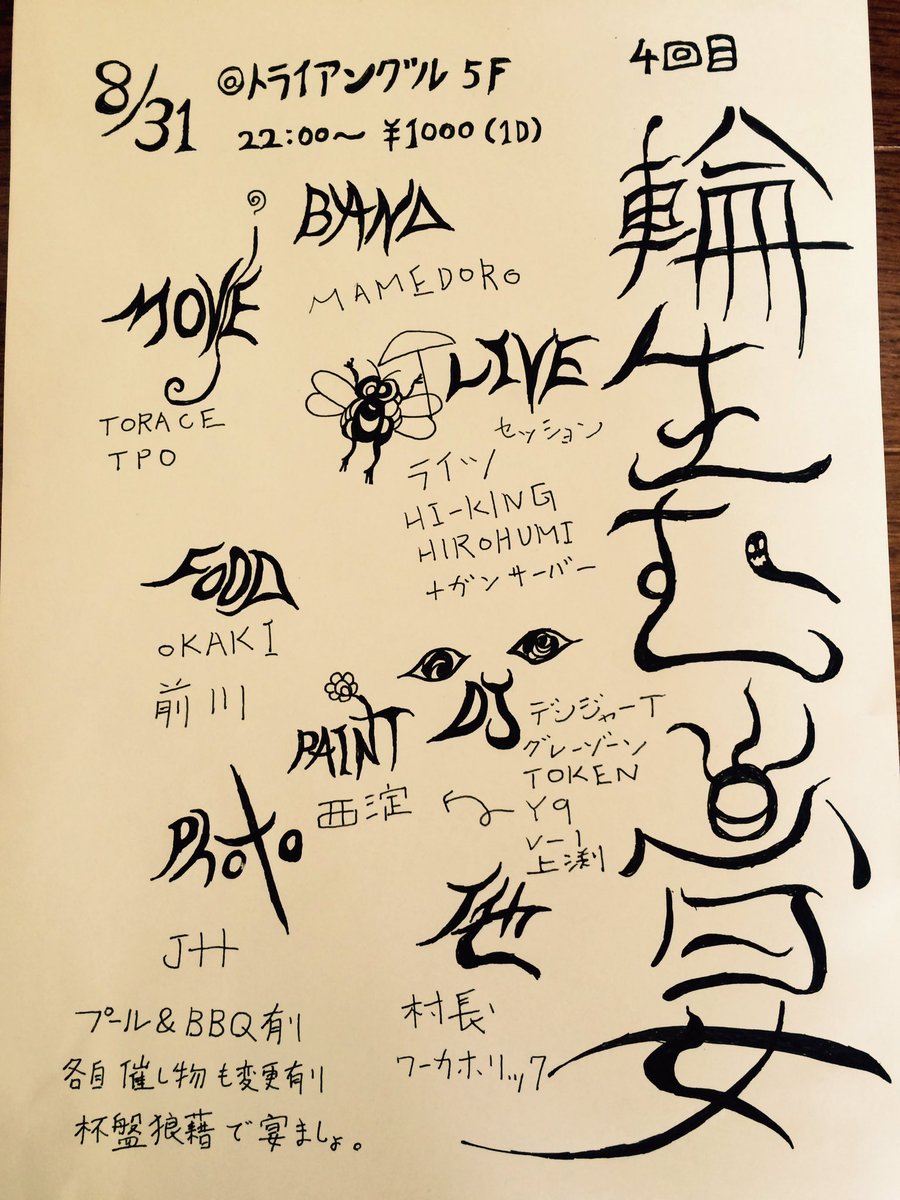 4回目
輪生む宴
8/31
@トライアングル 5F
22:00〜 ¥1000(1D)
BAND
MAMEDORO
MOVE
TORACE
TPO
LIVE
セッション
ライツ
HI-KING
HIROHUMI
FOOD
OKAKI
前川
DJ
デンジャーT
グレーゾーン
TOKEN
Y9
上渕
PAINT
西淀
PhoTo
JH
他
村長
ワーカホリック
プール&BBQ有リ
各自催し物も変更有リ
杯盤狼藉で宴ましょ。